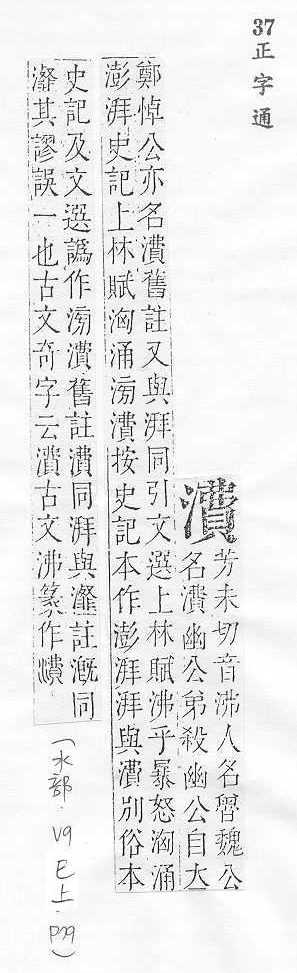 37正字通
㵒
芳未切音沸人名魯魏公
名㵒幽公弟殺幽公自大
鄭悼公亦名㵒舊註又與湃同引文選上林賦沸乎暴怒洶涌
澎湃史記上林賦洶涌滂㵒按史記本作澎湃湃與㵒別俗本
史記及文選譌作滂㵒舊註㵒同湃與瀣註溉同
瀣其謬誤一也古文奇字云㵒古文沸篆作㵒
(水部.V9巳上.